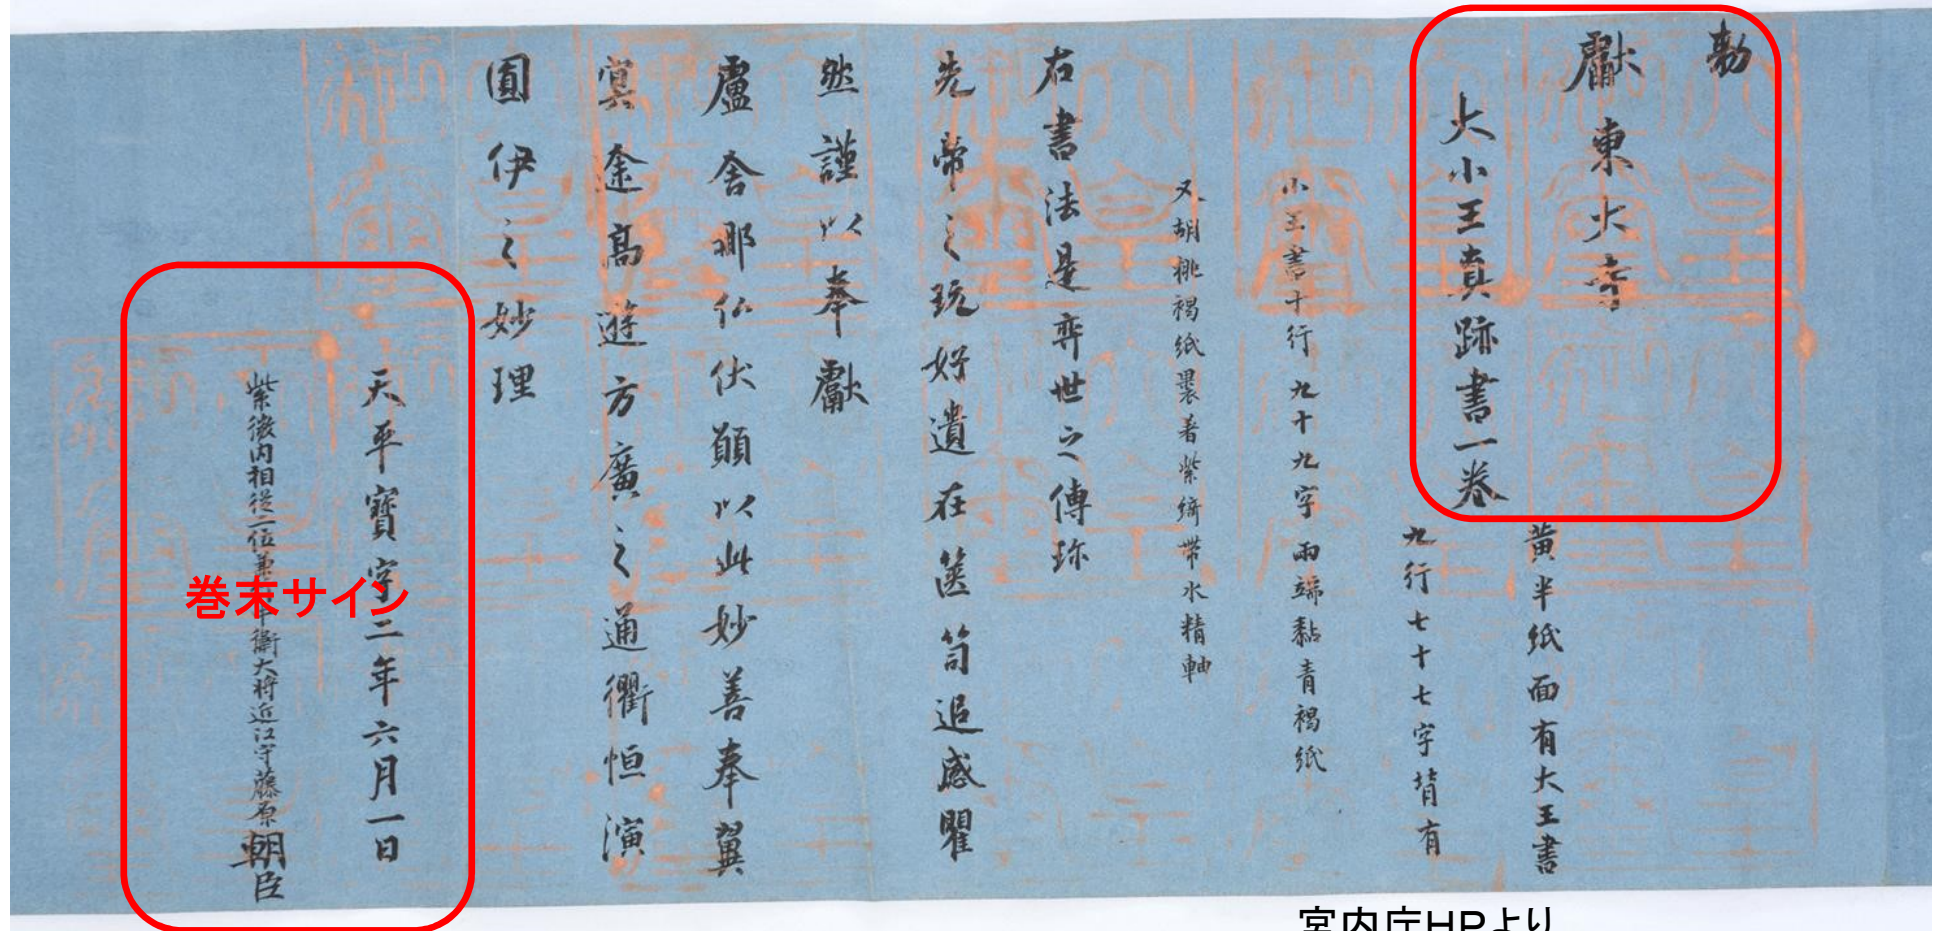 勅
獻東大寺
大小王真跡書一卷
黄半紙面有大王書
九行七十七字背有
小王書十行九十九字兩端黏青褐紙
又胡桃褐紙褁著紫綺帶水精軸
右書法是弈世之傳珎
先帝之玩好遺在篋笥追感瞿
然謹以奉獻
盧舍那仏伏願以此妙善奉翼
冥途高遊方廣之通衢恒演
圓伊之妙理
天平寶字二年六月一日
紫微内相從二位兼 衛大将近江守藤原朝臣
巻末サイン
宮内庁HPより